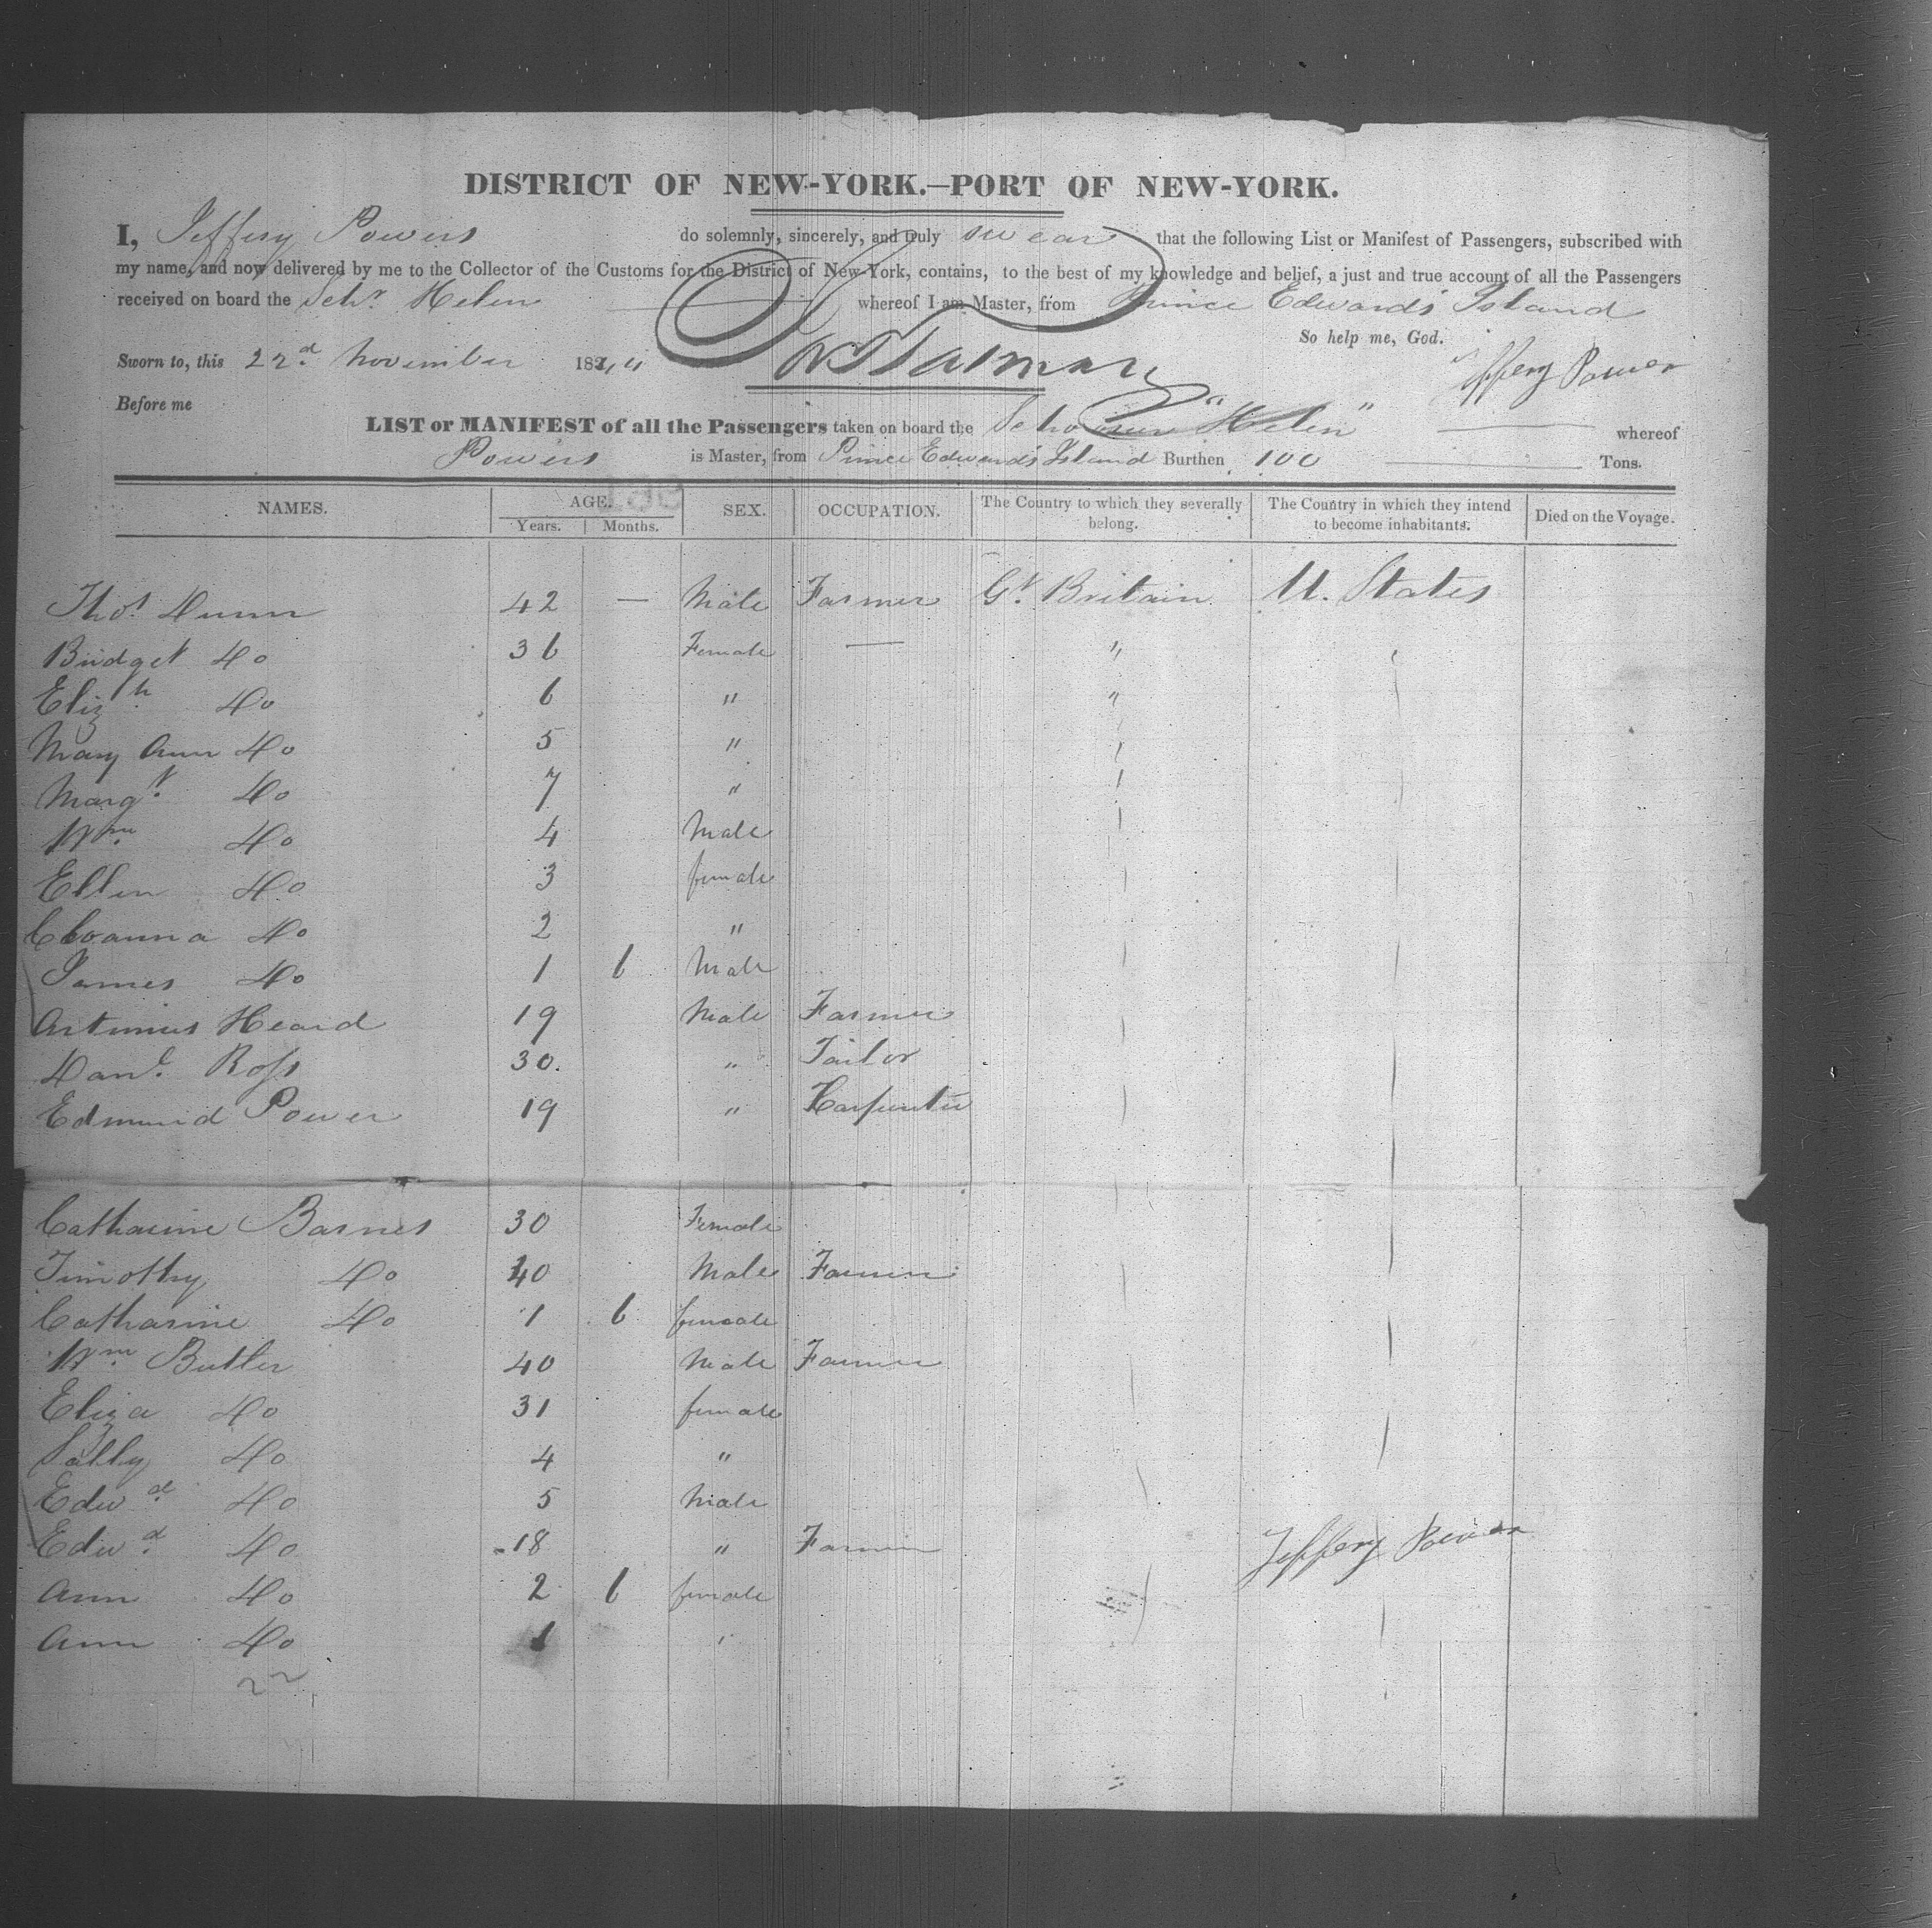 DISTRICT OF NEW-YORK.—PORT OF NEW-YORK.
I, Jeffery Powers do solemnly, sincerely, and truly swear that the following List or Manifest of Passengers, subscribed with
my name, and now delivered by me to the Collector of the Customs for the District of New-York, contains, to the best of my knowledge and belief, a just and true account of all the Passengers
received on board the Schr Helen whereof I am Master, from Prince Edwards Island
So help me, God.
Sworn to, this 22d November 1844 Jeffery Power
Before me
LIST or MANIFEST of all the Passengers taken on board the Schooner "Helen" whereof
Powers is Master, from Prince Edwards Island Burthen 100 Tons.
NAMES. AGE. SEX. OCCUPATION. The Country to which they severally belong. The Country in which they intend to become inhabitants. Died on the Voyage.
Years. Months.
Thos Dunn 42 — Male Farmer Gt. Britain U. States
Bridget Do 36 Female — "
Elizh Do 6 " "
Mary Ann Do 5 "
Margt. Do 7 "
Wm Do 4 Male
Ellen Do 3 female
Do 2 "
James Do 1 6 Male
Artimus Heard 19 Male Farmer
Danl. Ross 30 " Tailor
Edmund Power 19 " Carpenter
Catharine Barnes 30 Female
Timothy Do 40 Male Farmer
Catharine Do 1 6 female
Wm Butler 40 Male Farmer
Eliza Do 31 female
Sally Do 4 "
Edwd. Do 5 Male
Edwd. Do 18 " Farmer
Jeffery Power
Ann Do 2 6 female
Ann Do 1 "
22